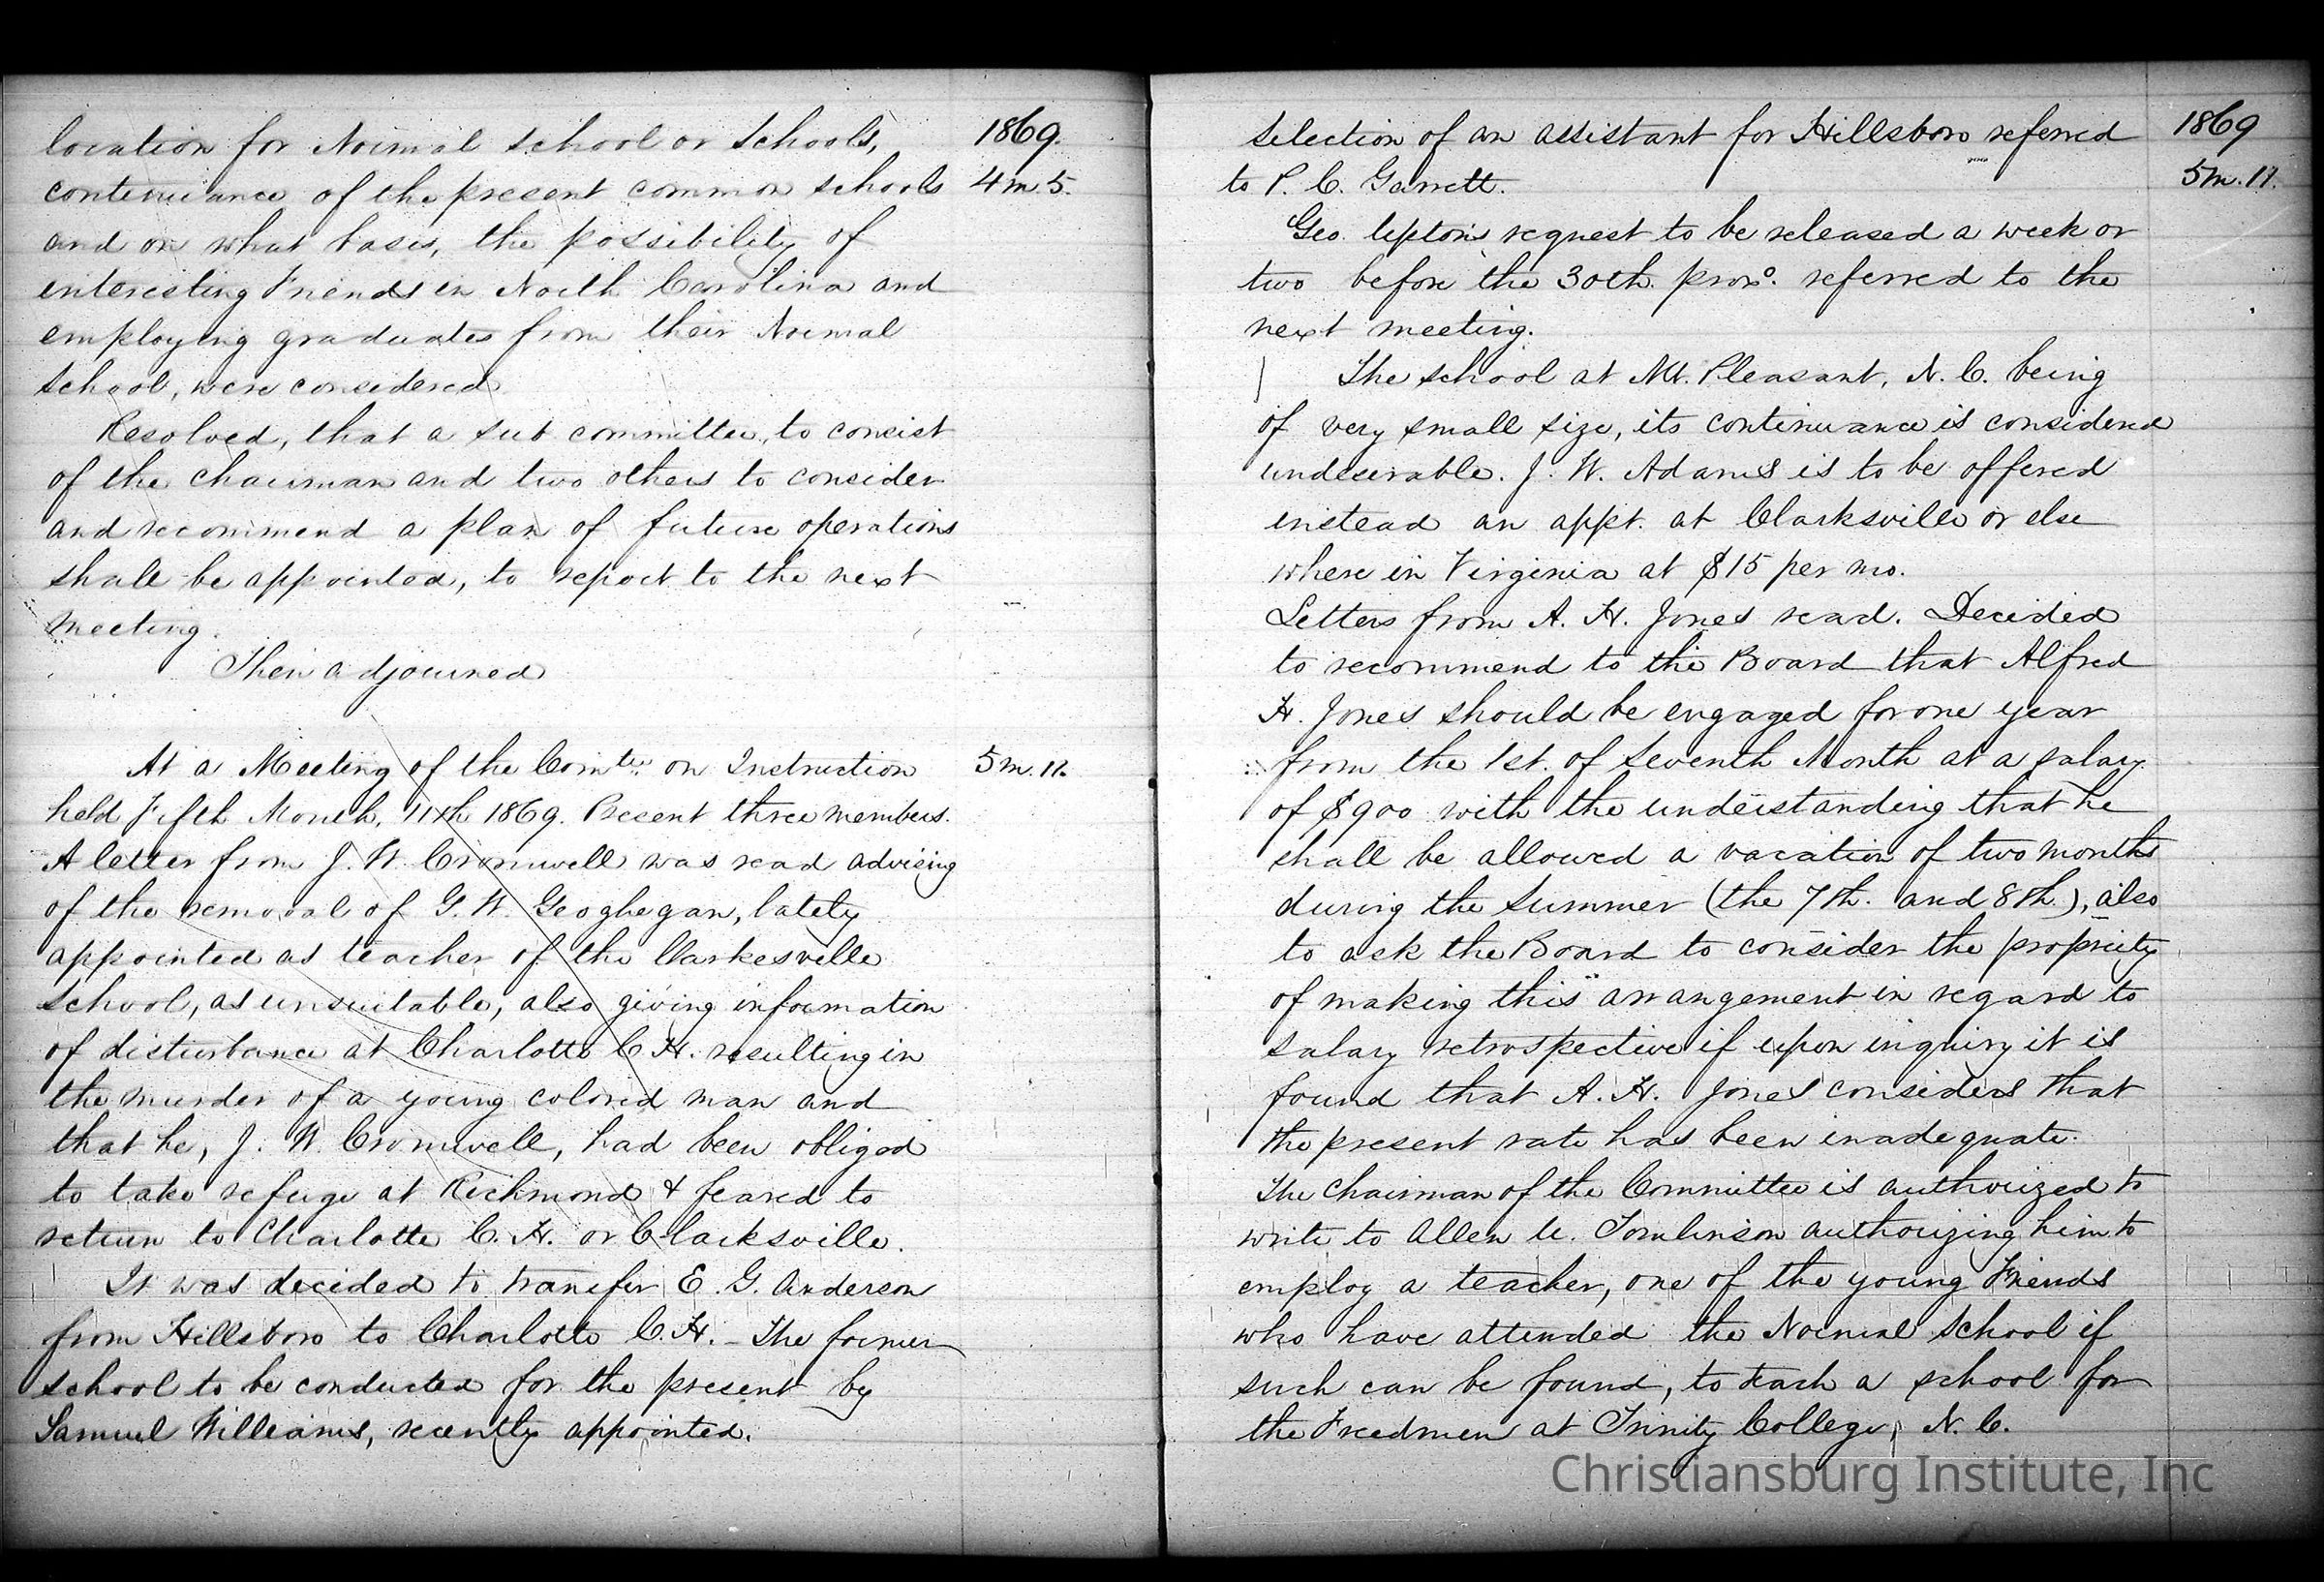 1869.
location for Normal School or Schools,
continuance of the present common schools 4 m. 5.
and on what basis, the possibility of
interesting Friends in North Carolina and
employing graduates from their Normal
School, were considered
Resolved, that a sub committee, to consist
of the Chairman and two others to consider
and recommend a plan of future operations
shall be appointed, to report to the next
meeting.
Then adjourned
At a Meeting of the Comtee on Instruction 5 m. 11.
held Fifth Month, 11th 1869. Present three members.
A letter from J. W. Cromwell was read advising
of the removal of G. W. Geoghegan, lately
appointed as teacher of the Clarkesville
School, as unsuitable, also giving information
of disturbance at Charlotte C. H. resulting in
the murder of a young colored man and
that he, J. W. Cromwell, had been obliged
to take refuge at Richmond & feared to
return to Charlotte C. H. or Clarksville.
It was decided to transfer E. G. Anderson
from Hillsboro to Charlotte C. H. - The former
School to be conducted for the present by
Samuel Williams, recently appointed.
1869
Selection of an assistant for Hillsboro referred
to P. C. Garrett. 5 m. 11.
Geo. Upton's request to be released a week or
two before the 30th. proxo. referred to the
next meeting.
The school at Mt. Pleasant, N. C. being
of very small size, its continuance is considered
undesirable. J. W. Adams is to be offered
instead an appt. at Clarksville or else
where in Virginia at $15 per mo.
Letters from A. H. Jones read. Decided
to recommend to the Board that Alfred
H. Jones should be engaged for one year
from the 1st. of Seventh Month at a salary
of $900 with the understanding that he
shall be allowed a vacation of two months
during the Summer (the 7th. and 8th.), also
to ask the Board to consider the propriety
of making this arrangement in regard to
salary retrospective if upon inquiry it is
found that A. H. Jones considers that
the present rate has been inadequate.
The Chairman of the Committee is authorized to
write to Allen U. Tomlinson authorizing him to
employ a teacher, one of the young Friends
who have attended the Normal School if
such can be found, to teach a school for
the Freedmen at Trinity College, N. C.
Christiansburg Institute, Inc